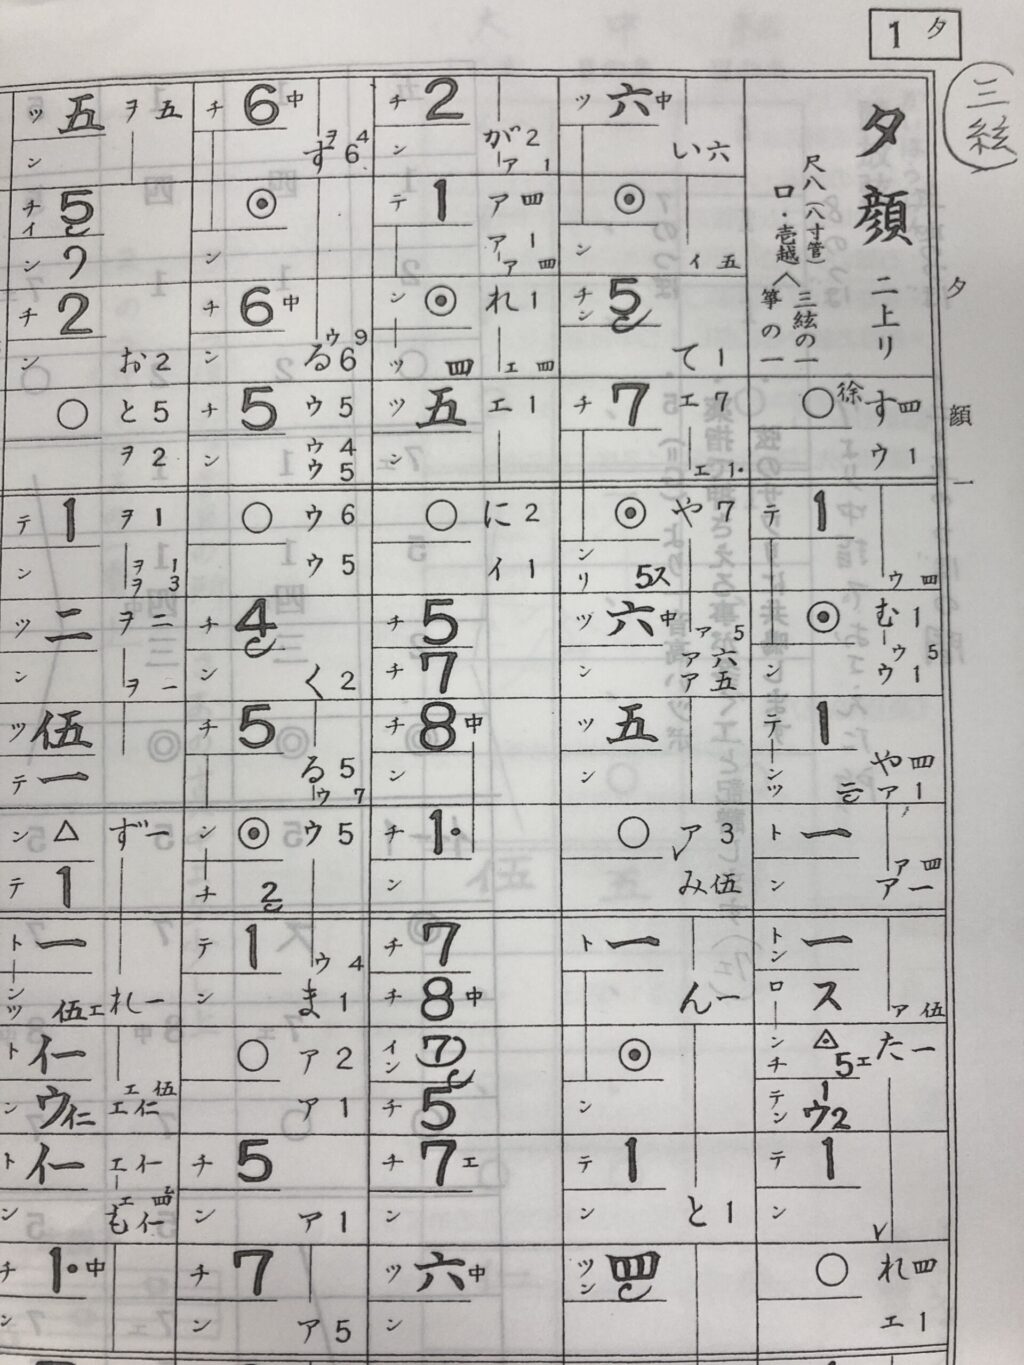 1 夕
三絃
夕顔 二上り
尺八(八寸管)
ロ・壱越
三絃の一
箏の一
夕顔 一
徐 す四
○ ウ1
テ 1
ウ四
◉ む1
ウ5
ン ウ1
テ 1
ンツ 二 や四
ア1
ト 一
ア四
ン ア一
トン 一
ロ ス ア伍
ンチ △ 5ェ た一
テン 1 ウ2
テ 1
ン
○ れ四
エ1
ツ 六中
い六
◉
ン ィ五
チン 5
て1
チ 7 エ7
ェ1・
◉ や7
ンリ 5ス
ツ 六中 ァ5
ア六
ン ア五
ツ 五
ン
○ ア3
み伍
ト 一
ん一
◉
ン
テ 1
ン と1
ツン 四
チ 2
ン が2
ァ1
テ 1 ア四
ア1
ァ四
ン ◉ れ1
ツ 四 ェ四
ツ 五 エ1
ン
○ に2
イ1
チ 5
チ 7
チ 8中
ン
チ 1・
ン
チ 7
チ 8中
イン 7
チ 5
チ 7ェ
ン
ツ 六中
ン
チ 6中
ヲ4
す6
◉
ン
チ 6中
ゥ9
ン る6
チ 5 ウ5
ウ4
ン ウ5
○ ウ6
ウ5
チ 4
ン く2
チ 5
る5
ゥ7
ン ◉ ウ5
チ 2
テ 1 ゥ4
ン ま1
○ ア2
ア1
チ 5
ン ア1
チ 7
ン ア5
ツ 五 ヲ五
ン
チイ 5
ン ワ
チ 2
ン お2
○ と5
ヲ2
テ 1 ヲ1
ヲ1
ン ヲ3
ツ 二 ヲ二
ン ヲ一
ツ 伍
テ 一
ン △ ず一
テ 1
ト 一
ンツ 伍ェ れ一
ト イ一
ェ伍
ン ウ仁 エ仁
ト イ一 エイ一
ン も
チ 1・中
ン